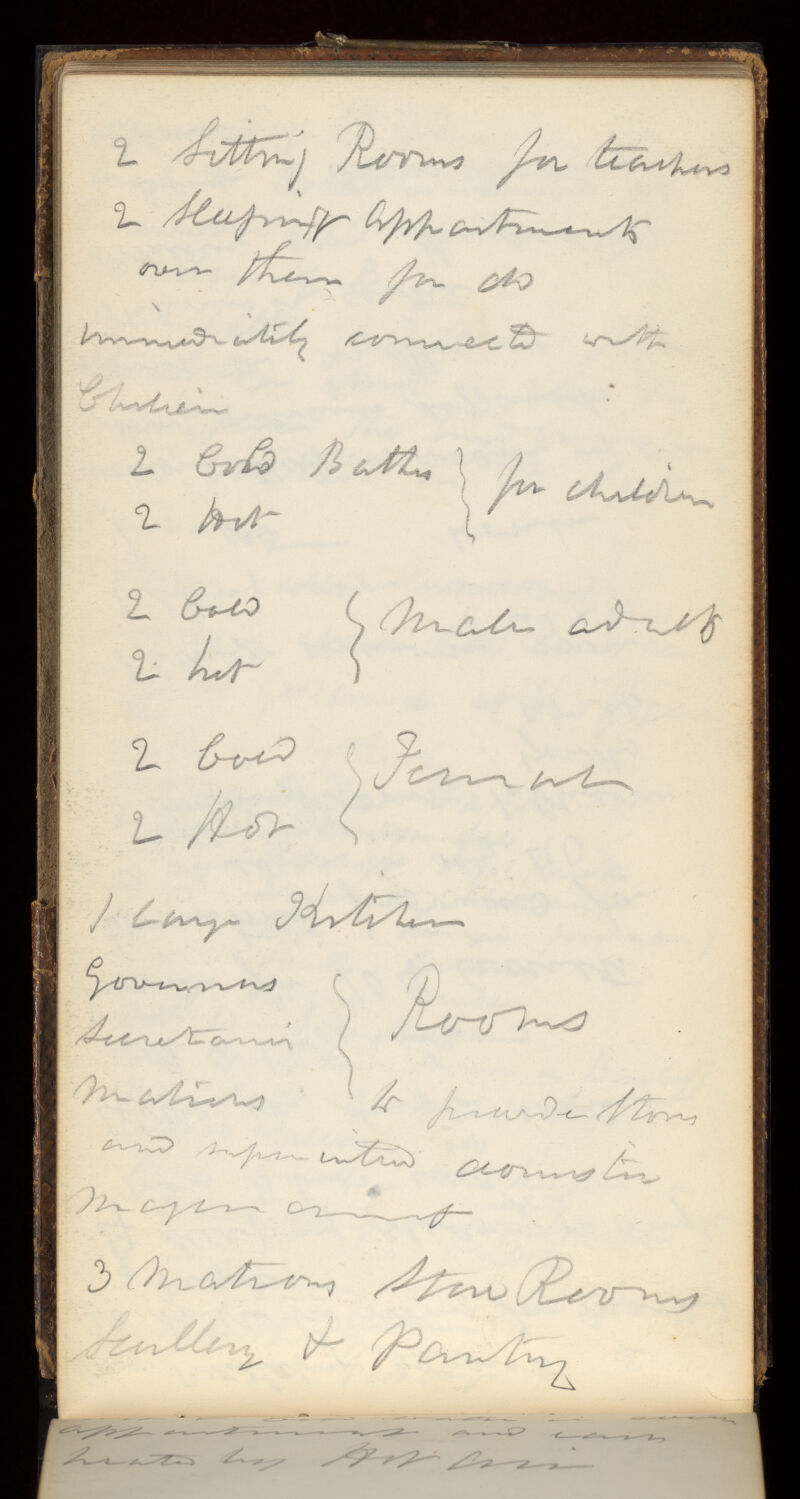 2 Sitting Rooms for teachers
2 Sleeping Appartments
over them for do
immediately connected with
Children
2 Cold Baths } for children
2 Hot
2 Cold } Males adults
2 hot
2 Cold } Female
2 Hot
1 large Kitchen
Governors } Rooms
Secretaries
Matrons to provide Stores
and superintend domestic
3 Matrons Store Rooms
Scullery & Pantry
appartment and
heated by Hot Air